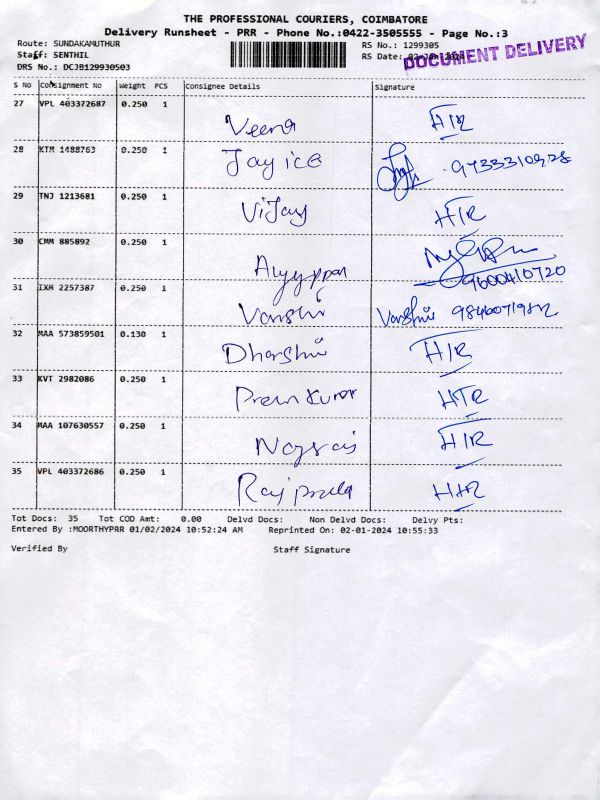 THE PROFESSIONAL COURIERS, COIMBATORE
Delivery Runsheet - PRR - Phone No.:0422-3505555 - Page No.:3
Route: SUNDAKAMUTHUR
RS No.: 1299305
Staff: SENTHIL
RS Date: 02-Jan-2024
DOCUMENT DELIVERY
DRS No.: DCJB129930503
S No Consignment No Weight PCS Consignee Details Signature
27 VPL 403372687 0.250 1 Veena HIR
28 KTM 1488763 0.250 1 Jayice 9733310928
29 TNJ 1213681 0.250 1 Vijay HIR
30 CMM 885892 0.250 1 Aiyyppan 9600410720
31 IXM 2257387 0.250 1 Vanshi Vanshi
32 MAA 573859501 0.130 1 Dharshni HIR
33 KVT 2982086 0.250 1 Prem kumar HIR
34 MAA 107630557 0.250 1 Nagraj HIR
35 VPL 403372686 0.250 1 HIR
Tot Docs: 35 Tot COD Amt: 0.00 Delvd Docs: Non Delvd Docs: Delvy Pts:
Entered By :MOORTHYPRR 01/02/2024 10:52:24 AM Reprinted On: 02-01-2024 10:55:33
Verified By Staff Signature